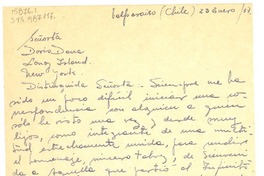 Valparaíso (Chile) 23 Enero /
Señorita
Doris Dana
Long Island.
New York.
Distinguida Señorita. Siempre me ha
sido un poco difícil iniciar una co-
rrespondencia con alguien a quien
solo he visto una vez y desde muy
lejos, como integrante de una multi-
tud estrechamente unida, para rendir
el homenaje, sincero
a Aquella que partió al